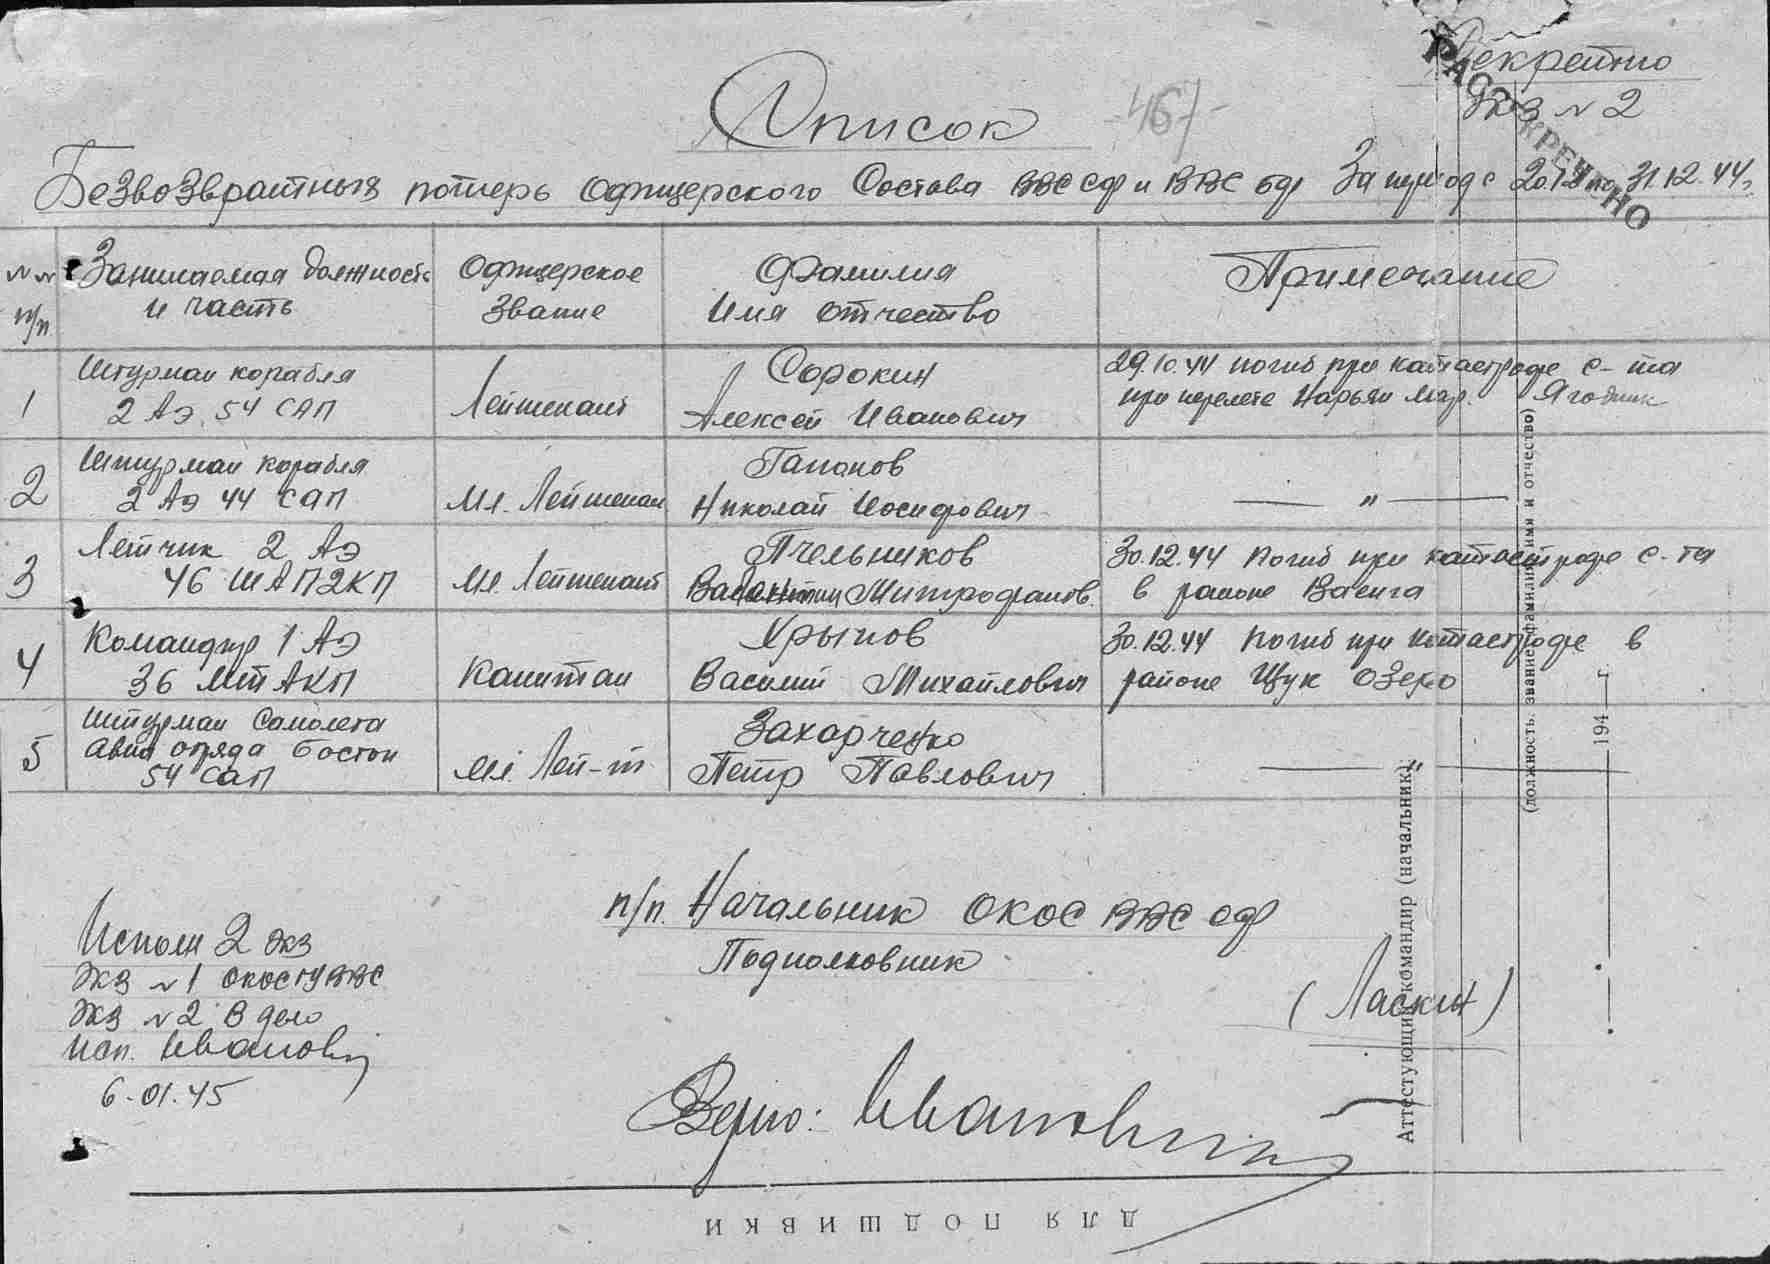 Секретно
Экз № 2
РАССЕКРЕЧЕНО
Список
-467-
Безвозвратных потерь Офицерского Состава ВВС СФ и ВВС БФ За период с 20.12 по 31.12.44г.
№ № п/п
Занимаемая должность и часть
Офицерское Звание
Фамилия Имя Отчество
Примечание
1
Штурман корабля
2 АЭ, 54 САП
Лейтенант
Сорокин
Алексей Иванович
29.10.44 погиб при катастрофе с-та
при перелете Нарьян Мар. Ягодник
2
Штурман корабля
2 АЭ 44 САП
Мл. Лейтенант
Гапонов
Николай Иосифович
— " —
3
Летчик 2 АЭ
46 ШАП2КП
Мл. Лейтенант
Пчельников
Валентин Митрофанов.
30.12.44 Погиб при катастрофе с-та
в районе Ваенга
4
Командир 1 АЭ
36 МТАКП
Капитан
Хрыпов
Василий Михайлович
30.12.44 Погиб при катастрофе в
районе Щук Озеро
5
Штурман Самолета
авиа отряда бостон
54 САП
Мл. Лей-т
Захарченко
Петр Павлович
— " —
п/п. Начальник ОКОС ВВС СФ
Подполковник
(Ласкин)
Исполн 2 экз
Экз № 1 ОКОС ГУВВС
Экз № 2 В дело
Исп. Иванович
6.01.45
Верно: Иванович
Аттестующий командир (начальник)
(должность, звание, фамилия, имя и отчество)
194 г.
ДЛЯ ПОДШИВКИ